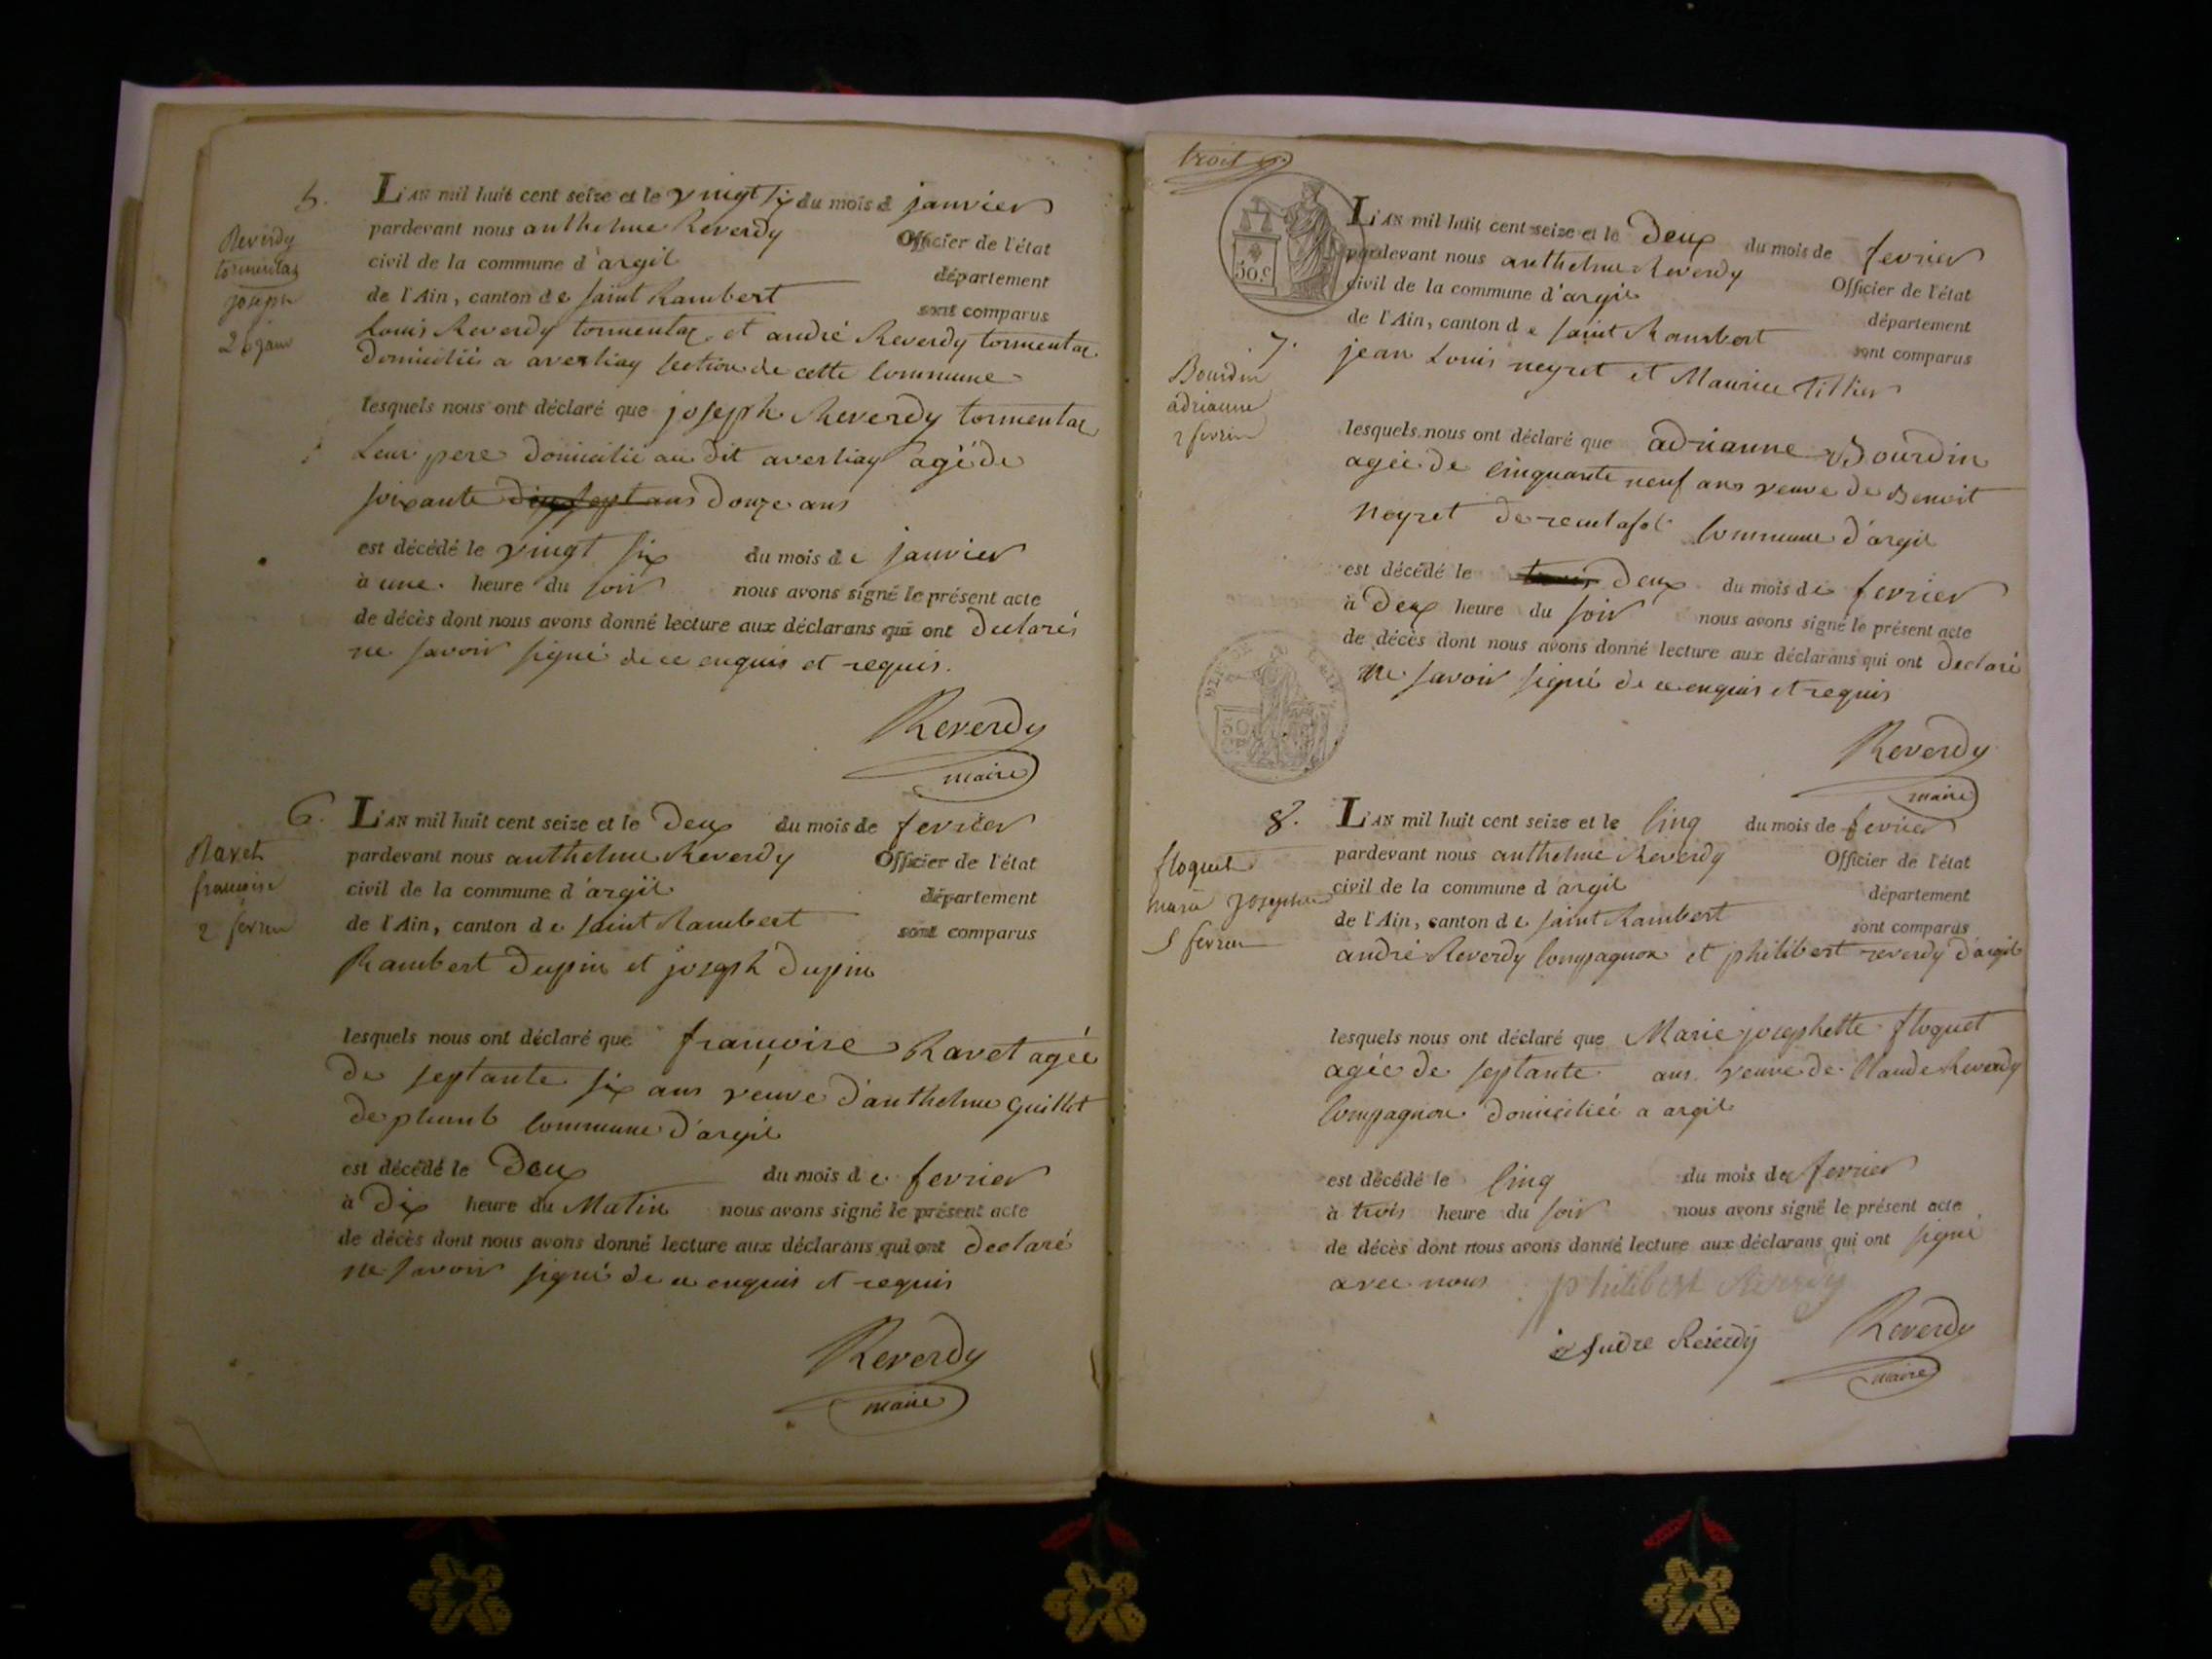 5.
Reverdy
tormentaz
joseph
26 janv
L'AN mil huit cent seize et le vingt six du mois d janvier
pardevant nous anthelme Reverdy Officier de l'état
civil de la commune d'argil département
de l'Ain, canton de saint Rambert sont comparus
Louis Reverdy tormentaz et andré Reverdy tormentaz
domicilié a averliay section de cette commune
lesquels nous ont déclaré que joseph Reverdy tormentaz
Leur pere domicilié au dit averliay agé de
soixante dix sept ans douze ans
est décédé le vingt six du mois de janvier
à une heure du soir nous avons signé le présent acte
de décès dont nous avons donné lecture aux déclarans qui ont declarés
ne savoir signé de ce enquis et requis.
Reverdy
maire
6.
Ravet
francoise
2 fevrier
L'AN mil huit cent seize et le deux du mois de fevrier
pardevant nous anthelme Reverdy Officier de l'état
civil de la commune d'argil département
de l'Ain, canton de saint Rambert sont comparus
Rambert dupin et joseph dupin
lesquels nous ont déclaré que francoise Ravet agée
de septante six ans veuve d'anthelme Guillot
de plumb commune d'argil
est décédé le deux du mois de fevrier
à dix heure du Matin nous avons signé le présent acte
de décès dont nous avons donné lecture aux déclarans qui ont declaré
ne savoir signé de ce enquis et requis
Reverdy
maire
trois
50.C
7.
Bourdin
adrianne
2 fevrier
L'AN mil huit cent seize et le deux du mois de fevrier
pardevant nous anthelme Reverdy Officier de l'état
civil de la commune d'argil département
de l'Ain, canton de saint Rambert sont comparus
jean Louis neyret et Maurice tillier
lesquels nous ont déclaré que adrianne Bourdin
agée de cinquante neuf ans veuve de Benoit
Neyret de commune d'argil
est décédé le deux du mois de fevrier
à deux heure du soir nous avons signé le présent acte
de décès dont nous avons donné lecture aux déclarans qui ont declaré
ne savoir signé de ce enquis et requis
50
Reverdy
maire
8.
floquet
marie josephte
5 fevrier
L'AN mil huit cent seize et le cinq du mois de fevrier
pardevant nous anthelme Reverdy Officier de l'état
civil de la commune d'argil département
de l'Ain, canton de saint Rambert sont comparus
andré Reverdy compagnon et philibert reverdy d'argil
lesquels nous ont déclaré que Marie josephette floquet
agée de septante ans veuve de Claude Reverdy
compagnon domiciliée a argil
est décédé le cinq du mois de fevrier
à trois heure du soir nous avons signé le présent acte
de décès dont nous avons donné lecture aux déclarans qui ont signé
avec nous philibert Reverdy
Andre Reverdy Reverdy
maire